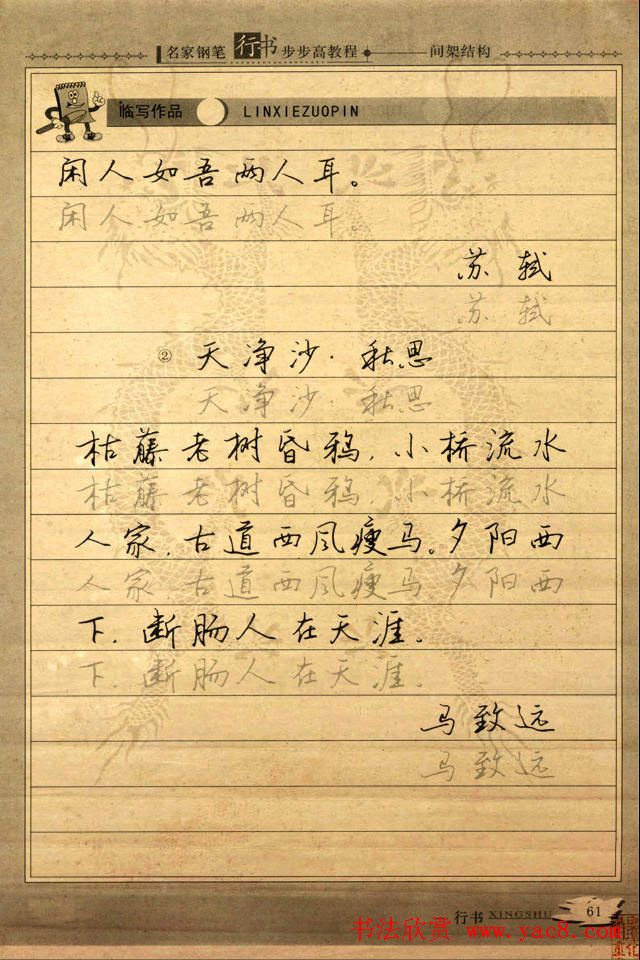 名家钢笔行书步步高教程 间架结构
临写作品 LINXIEZUOPIN
闲人如吾两人耳。
闲人如吾两人耳
苏轼
苏轼
② 天净沙·秋思
天净沙·秋思
枯藤老树昏鸦,小桥流水
枯藤老树昏鸦,小桥流水
人家,古道西风瘦马。夕阳西
人家,古道西风瘦马。夕阳西
下,断肠人在天涯。
下,断肠人在天涯。
马致远
马致远
行书 XINGSHU 61
书法欣赏 www.yac8.com